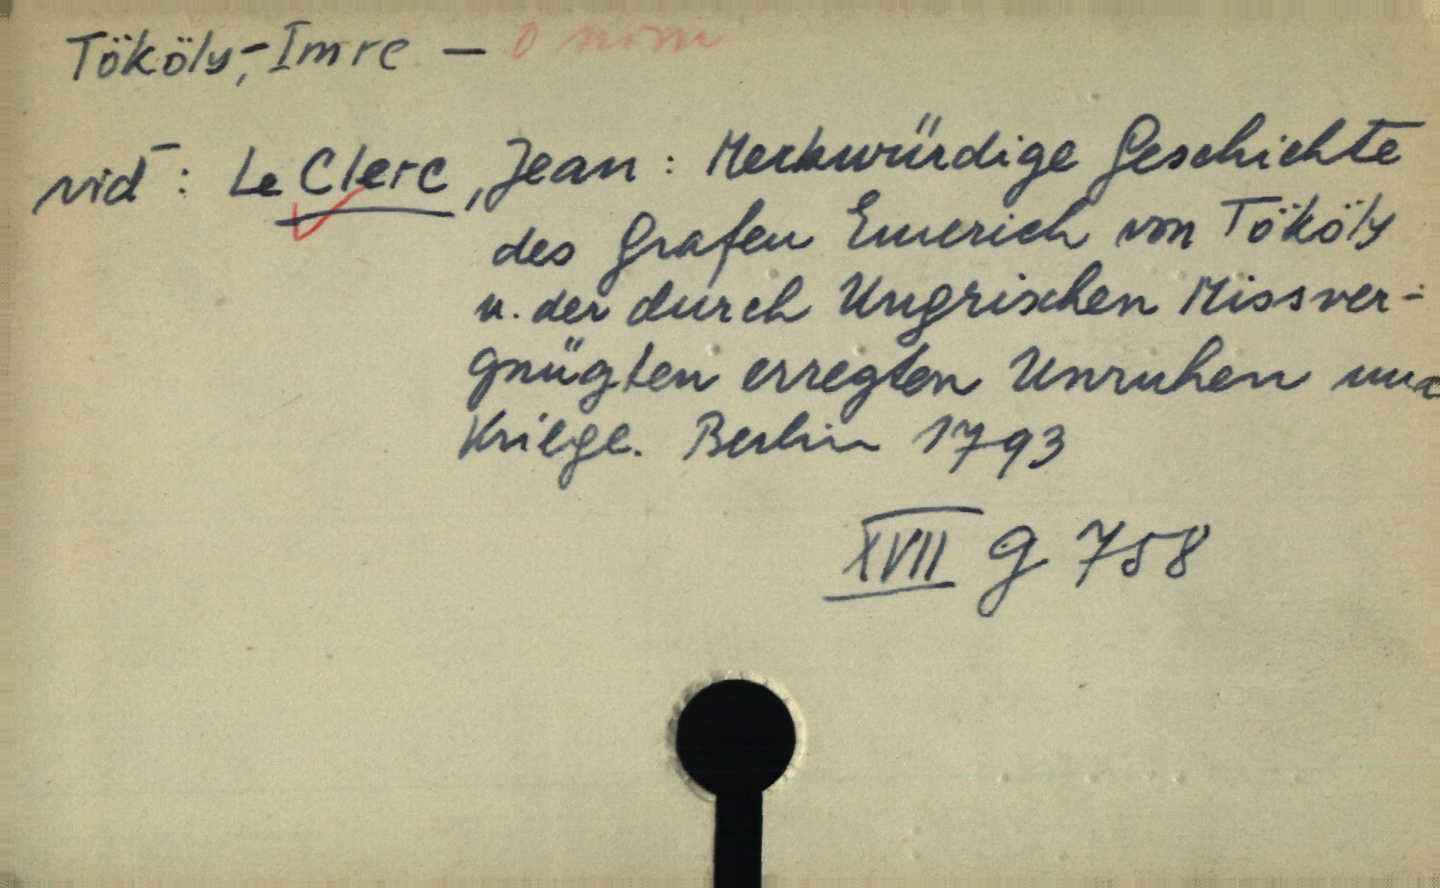 Tököly, Imre — O nom
vid: Le Clerc, Jean: Merkwürdige Geschichte
des Grafen Emerich von Tököly
u. der durch Ungrischen Missver-
gnügten erregten Unruhen und
Kriege. Berlin 1793
XVII G 758